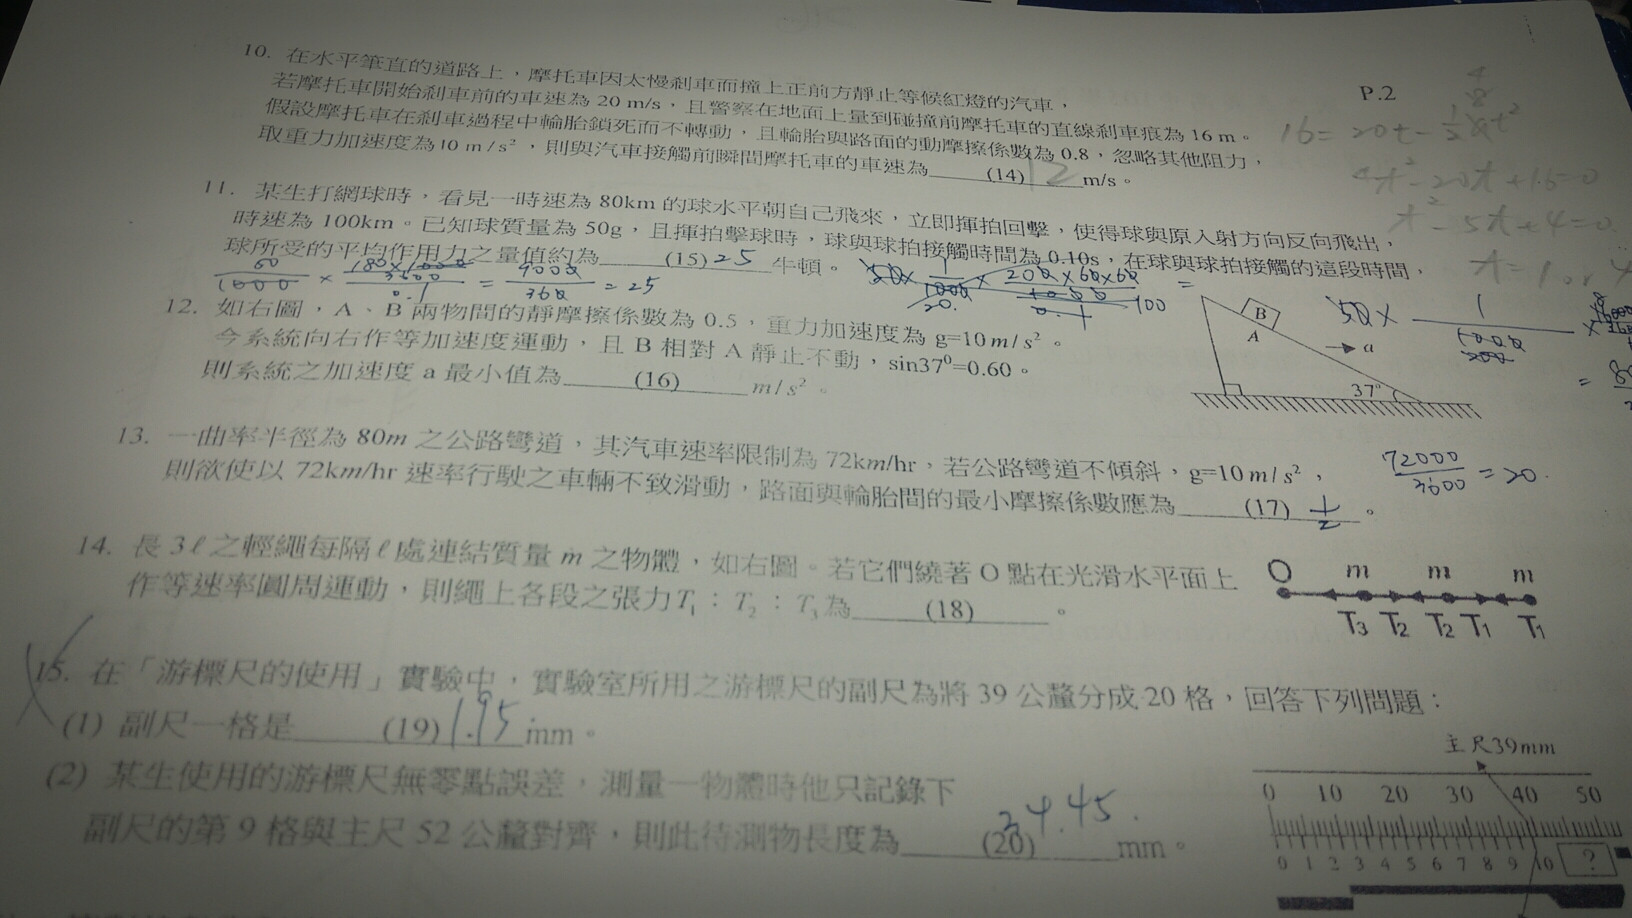 P.2
10. 在水平筆直的道路上，摩托車因太慢剎車而撞上正前方靜止等候紅燈的汽車，
若摩托車開始剎車前的車速為 20 m/s，且警察在地面上量到碰撞前摩托車的直線剎車痕為 16 m。
假設摩托車在剎車過程中輪胎鎖死而不轉動，且輪胎與路面的動摩擦係數為 0.8，忽略其他阻力，
取重力加速度為10 m/s²，則與汽車接觸前瞬間摩托車的車速為 (14) 12 m/s。
16=20t-½8t²
4t²-20t+16=0
t²-5t+4=0
t=1 or 4
11. 某生打網球時，看見一時速為 80km 的球水平朝自己飛來，立即揮拍回擊，使得球與原入射方向反向飛出，
時速為 100km。已知球質量為 50g，且揮拍擊球時，球與球拍接觸時間為 0.10s，在球與球拍接觸的這段時間，
球所受的平均作用力之量值約為 (15) 25 牛頓。
= 25
12. 如右圖，A、B 兩物間的靜摩擦係數為 0.5，重力加速度為 g=10m/s²。
今系統向右作等加速度運動，且 B 相對 A 靜止不動，sin37⁰=0.60。
則系統之加速度 a 最小值為 (16) m/s²。
B
A
a
37°
13. 一曲率半徑為 80m 之公路彎道，其汽車速率限制為 72km/hr，若公路彎道不傾斜，g=10m/s²，
則欲使以 72km/hr 速率行駛之車輛不致滑動，路面與輪胎間的最小摩擦係數應為 (17) 1/2 。
72000/3600 = 20.
14. 長 3ℓ 之輕繩每隔 ℓ 處連結質量 m 之物體，如右圖。若它們繞著 O 點在光滑水平面上
作等速率圓周運動，則繩上各段之張力T₁：T₂：T₃為 (18) 。
O m m m
T₃ T₂ T₂ T₁ T₁
15. 在「游標尺的使用」實驗中，實驗室所用之游標尺的副尺為將 39 公釐分成 20 格，回答下列問題：
(1) 副尺一格是 (19) 1.95 mm。
(2) 某生使用的游標尺無零點誤差，測量一物體時他只記錄下
副尺的第 9 格與主尺 52 公釐對齊，則此待測物長度為 (20) 34.45. mm。
主尺39mm
0 10 20 30 40 50
0 1 2 3 4 5 6 7 8 9 10 ?